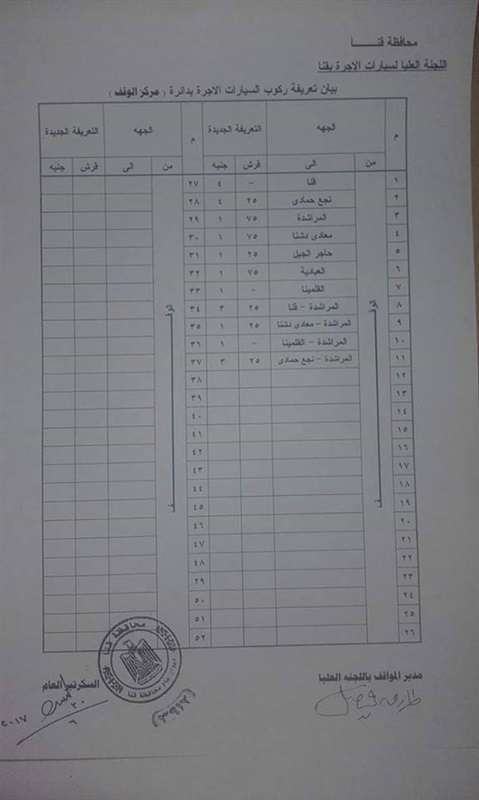 محافظة قنــــا
اللجنة العليا لسيارات الاجرة بقنا
بيان تعريفة ركوب السيارات الاجرة بدائرة ( مركز الوقف )
م الجهه التعريفة الجديدة م الجهه التعريفة الجديدة
من الى قرش جنيه من الى قرش جنيه
١ قنا - ٤ ٢٧
٢ نجع حمادى ٢٥ ٤ ٢٨
٣ المراشدة ٧٥ ١ ٢٩
٤ معادى دشنا ٧٥ ١ ٣٠
٥ حاجر الجبل ٢٥ ١ ٣١
٦ العبادية ٧٥ ١ ٣٢
٧ القلمينا - ١ ٣٣
٨ المراشدة - قنا ٢٥ ٣ ٣٤
٩ المراشدة - معادى دشنا ٢٥ ١ ٣٥
١٠ المراشدة - القلمينا - ١ ٣٦
١١ المراشدة - نجع حمادى ٢٥ ٣ ٣٧
١٢ ٣٨
١٣ ٣٩
١٤ ٤٠
١٥ ٤١
١٦ ٤٢
١٧ ٤٣
١٨ ٤٤
١٩ ٤٥
٢٠ ٤٦
٢١ ٤٧
٢٢ ٤٨
٢٣ ٢٩
٢٤ ٥٠
٢٥ ٥١
٢٦ ٥٢
الوقــف
الوقــف
محافظة قنا
مدير المواقف باللجنه العليا
السكرتير العام
٢٠١٧